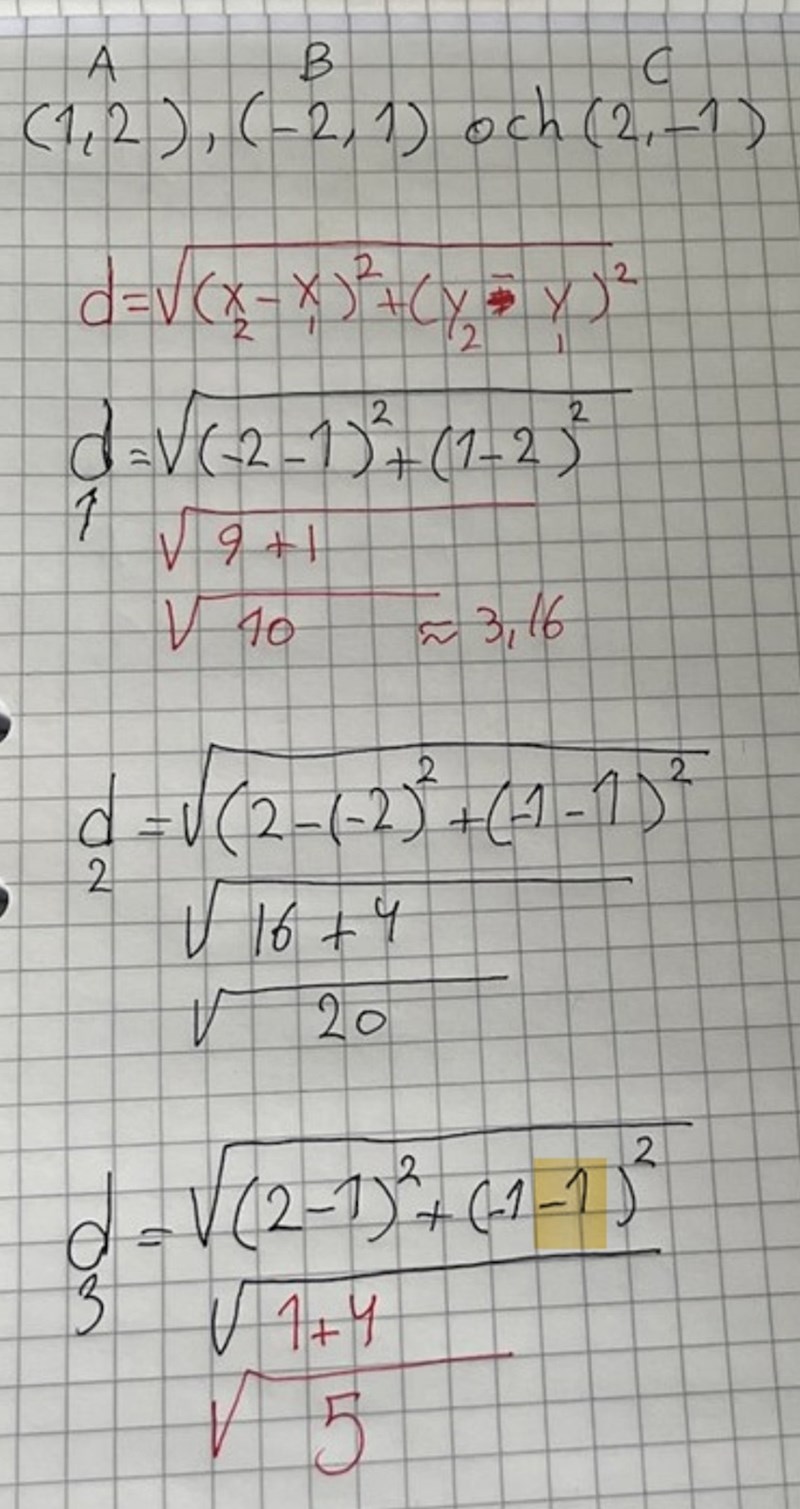 A B C
(1,2), (-2,1) och (2,-1)
d=√(x₂-x₁)²+(y₂-y₁)²
d₁=√(-2-1)²+(1-2)²
√9+1
√10 ≈ 3,16
d₂=√(2-(-2)²+(-1-1)²
√16+4
√20
d₃=√(2-1)²+(-1-1)²
√1+4
√5